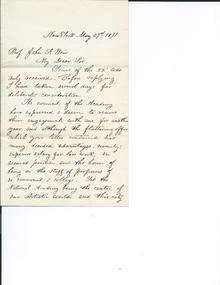 New York May 27th 1871
Prof. John F. Weir
My Dear Sir
Yours of the 22d was
duly received. Before replying
I have taken several days for
deliberate consideration.
The council of the Academy
have expressed a desire to renew
their engagement with me for another
year and although the flattering offer
which your letter contained has
many decided advantages, namely;
superior salary for less work, an
assured position and the honor of
being on the staff of professors of
so renowned a college. Yet the
National Academy being the centre of
our Artistic world and this city